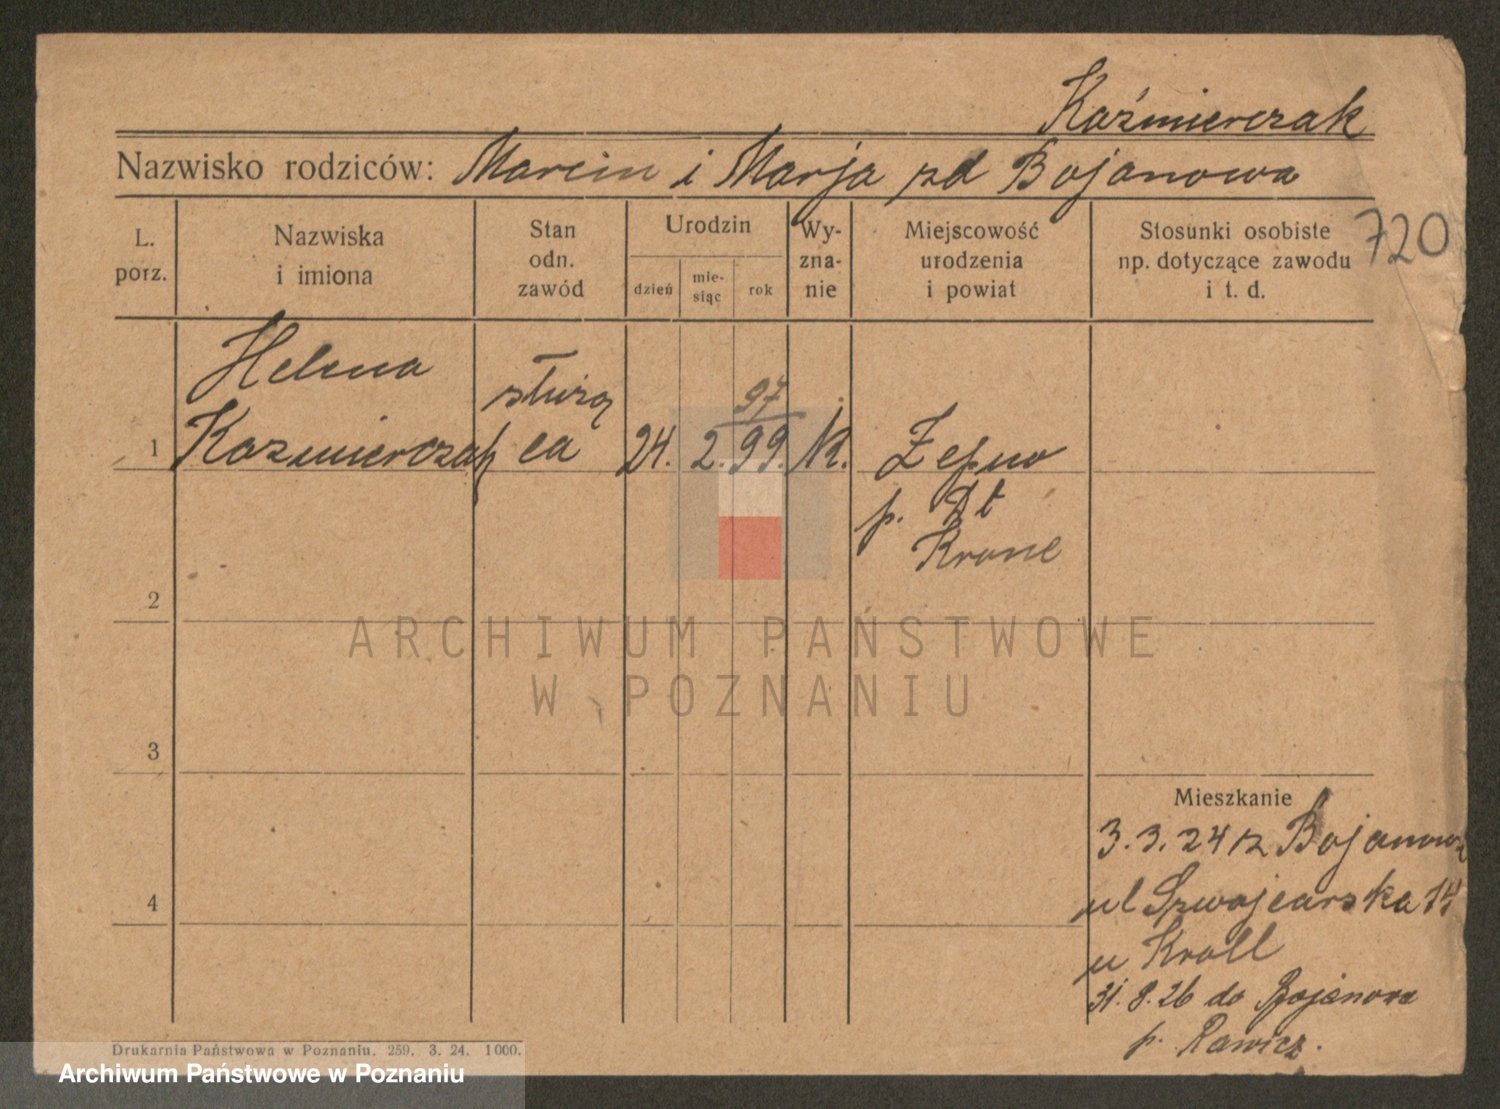 Kaźmierczak
Nazwisko rodziców: Marcin i Marja zd Bojanowa
720
L. porz.
Nazwiska i imiona
Stan odn. zawód
Urodzin
dzień
mie-
siąc
rok
Wy-
zna-
nie
Miejscowość urodzenia i powiat
Stosunki osobiste np. dotyczące zawodu i t. d.
Helena
służą
97
1 Kazmierczak ca 24. 2. 99. K.
p. Dt
Krone
2
ARCHIWUM PAŃSTWOWE
W POZNANIU
3
Mieszkanie
3.3.24 z Bojanowa
4
ul Szwajcarska 14
u Kroll
31.8.26 do Bojanowa
p. Rawicz.
Drukarnia Państwowa w Poznaniu. 259. 3. 24. 1000.
Archiwum Państwowe w Poznaniu